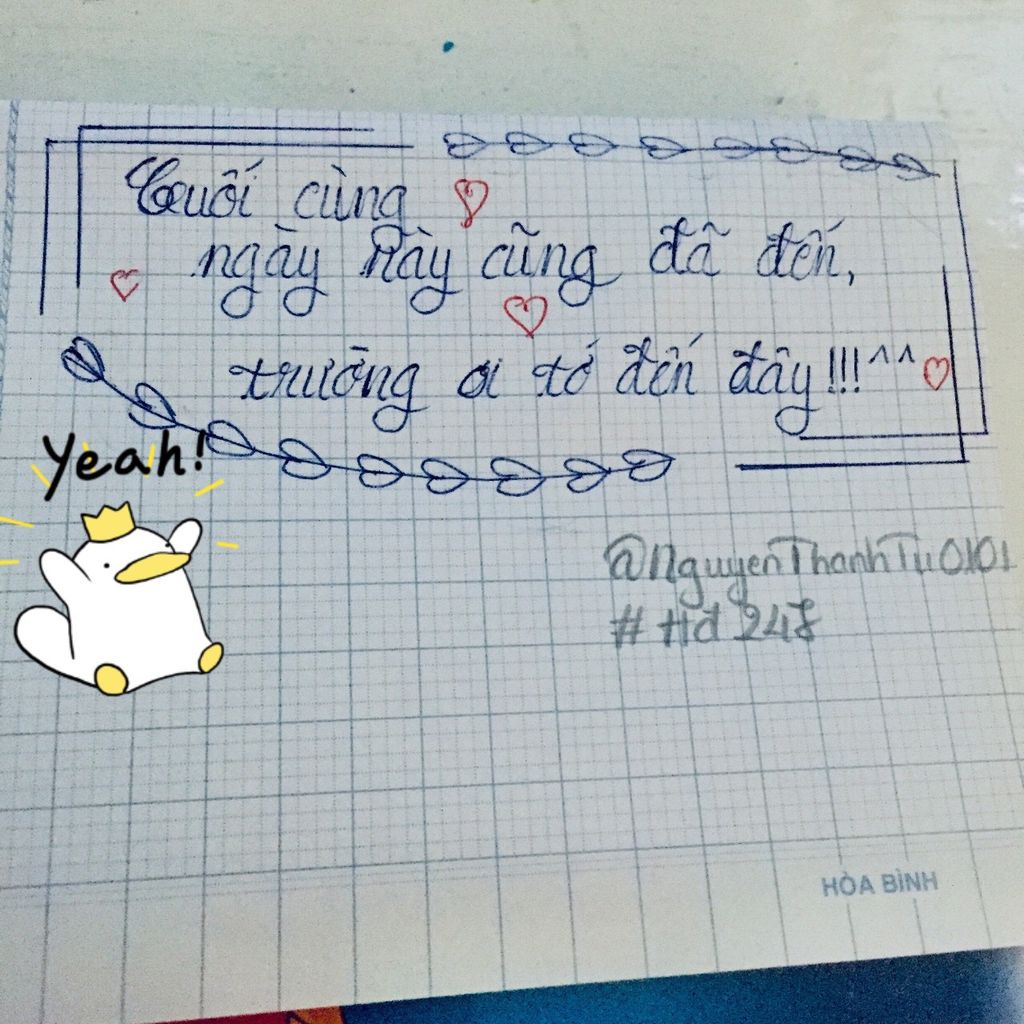 Cuối cùng
ngày này cũng đã đến,
trường ơi tớ đến đây!!!^^
Yeah!
@NguyenThanhTu0101
#Hd247
HÒA BÌNH